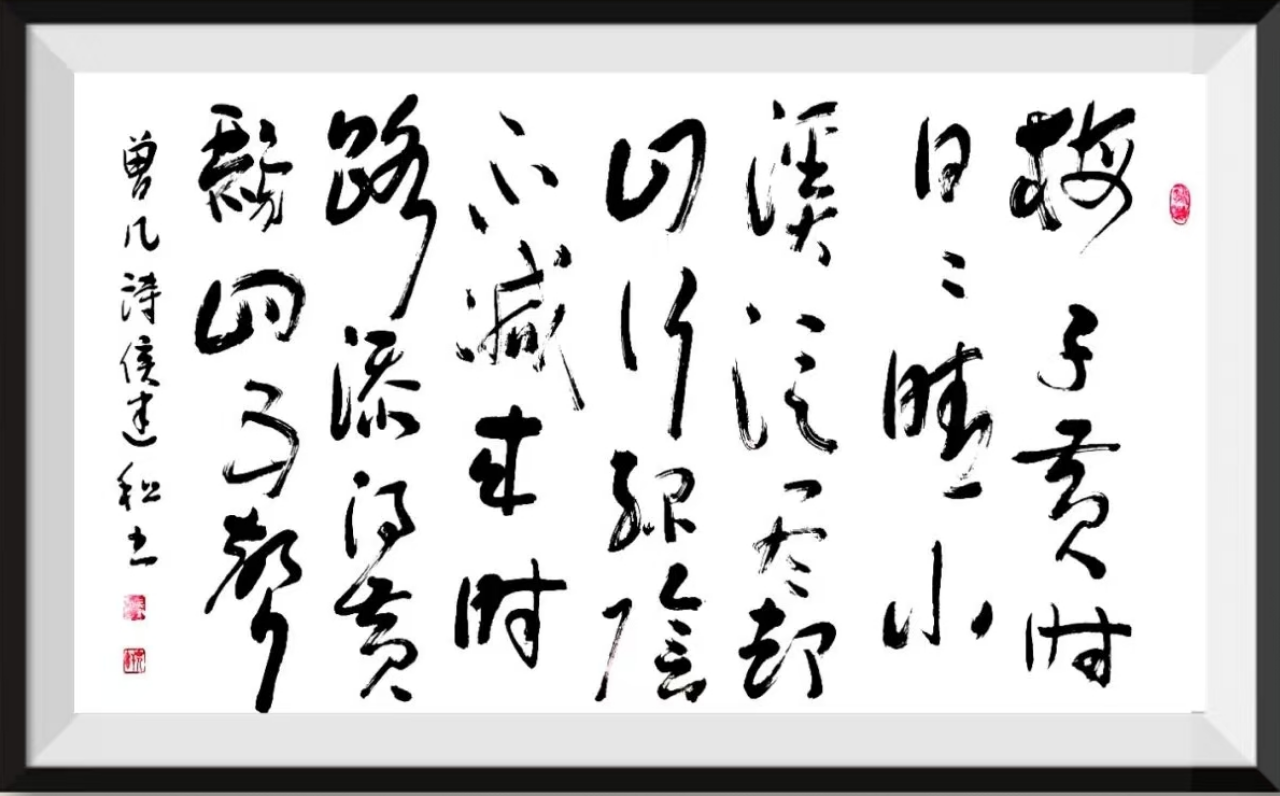 梅子黄时
日〻晴小
溪泛尽却
山行绿陰
不减来时
路添得黄
鹂四五聲
曾几詩侯建书